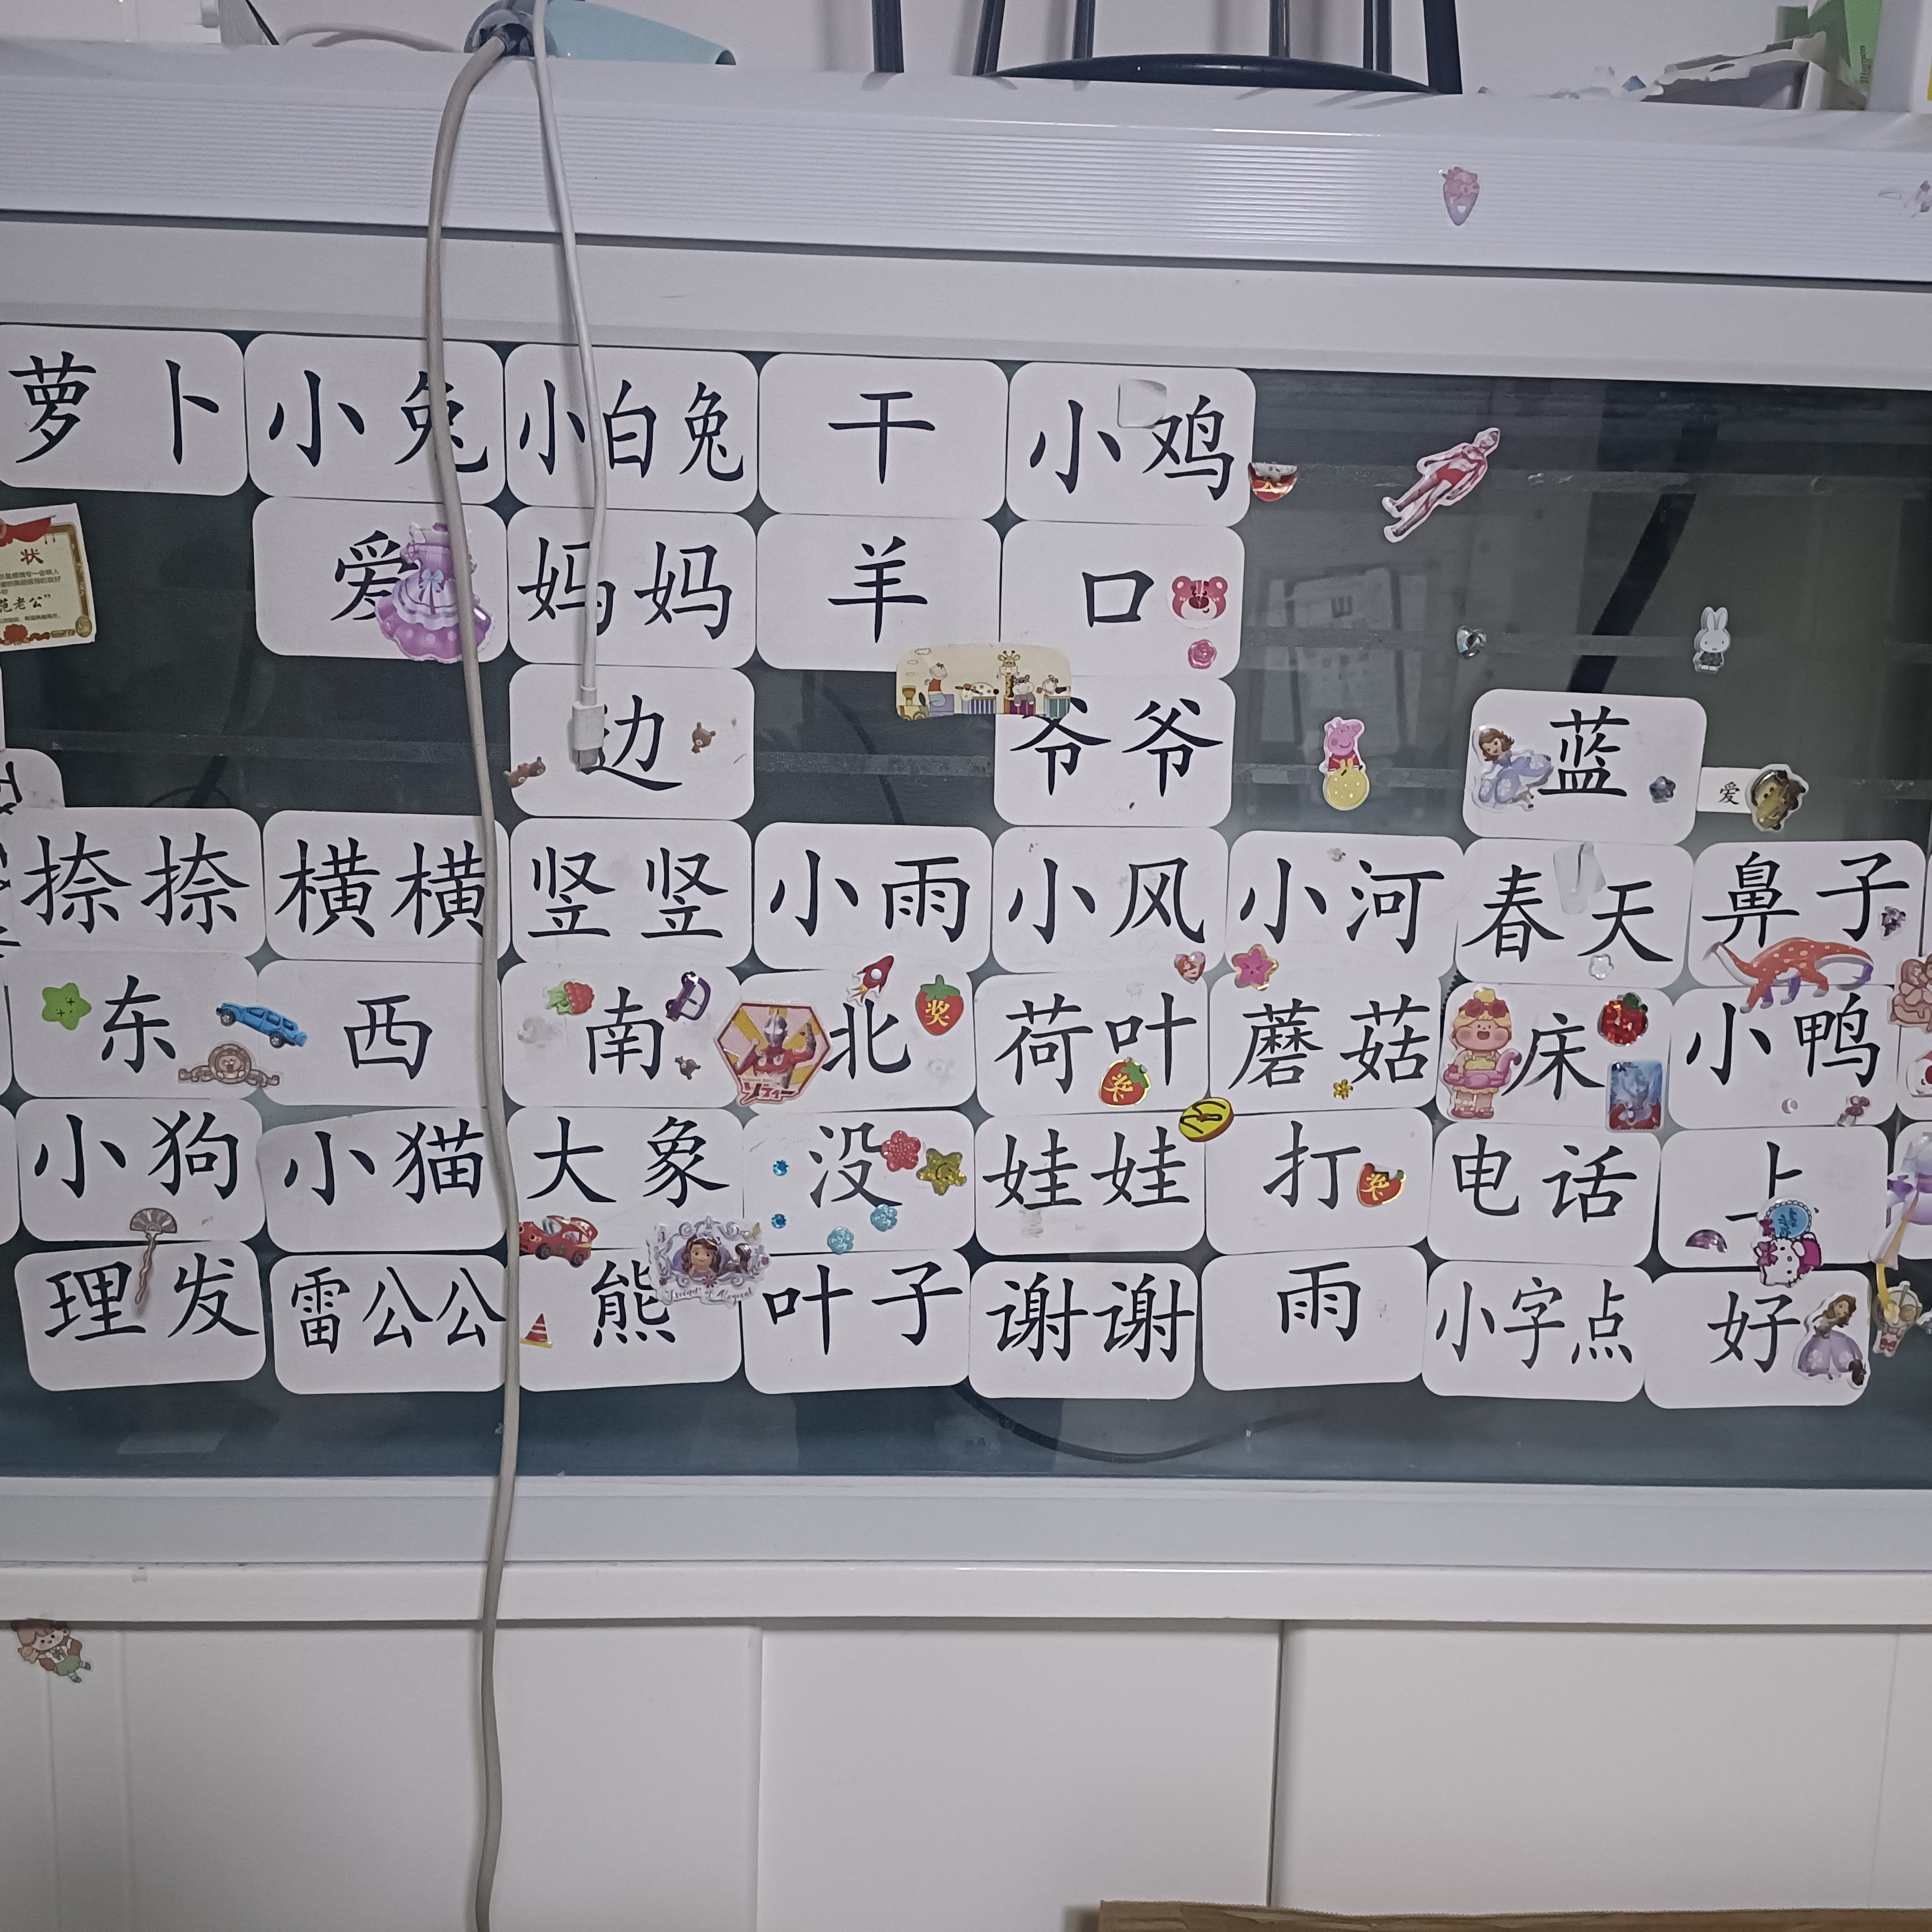 萝卜 小兔 小白兔 干 小鸡
爱 妈妈 羊 口
状
范老公”
边 爷爷 蓝
爱
捺捺 横横 竖竖 小雨 小风 小河 春天 鼻子
东 西 南 北 荷叶 蘑菇 床 小鸭
奖
奖
小狗 小猫 大象 没 娃娃 打 电话 上
奖
理发 雷公公 熊 叶子 谢谢 雨 小字点 好